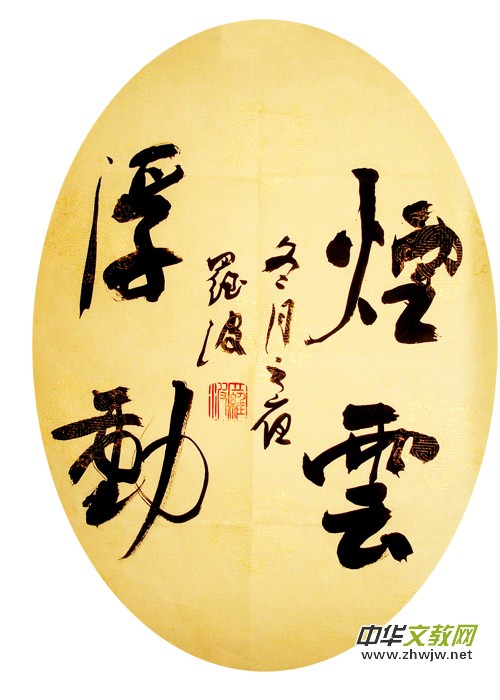 煙雲
浮動
冬月之夜
羅波
羅波
中华文教网
www.zhwjw.net